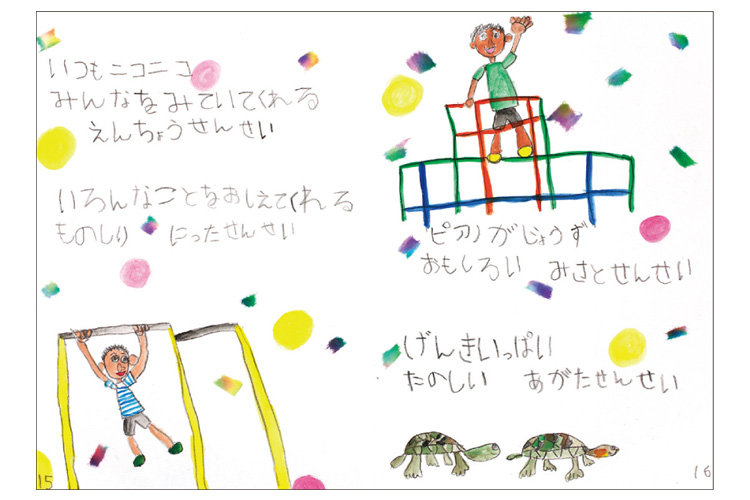 いつもニコニコ
みんなをみていてくれる
えんちょうせんせい
いろんなことをおしえてくれる
ものしり にったせんせい
15
ピアノがじょうず
おもしろい みさとせんせい
げんきいっぱい
たのしい あがたせんせい
16